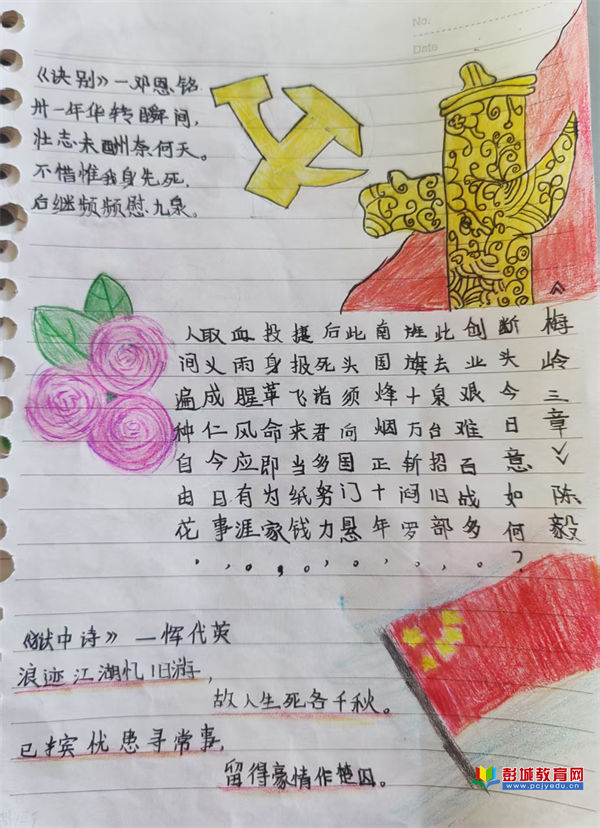 No.
Date
《诀别》—邓恩铭
卅一年华转瞬间,
壮志未酬奈何天。
不惜惟我身先死,
后继频频慰九泉。
《梅岭三章》陈毅
断头今日意如何?
创业艰难百战多。
此去泉台招旧部,
旌旗十万斩阎罗。
南国烽烟正十年,
此头须向国门悬。
后死诸君多努力,
捷报飞来当纸钱。
投身革命即为家,
血雨腥风应有涯。
取义成仁今日事,
人间遍种自由花。
《狱中诗》—恽代英
浪迹江湖忆旧游,
故人生死各千秋。
已摈忧患寻常事,
留得豪情作楚囚。
彭城教育网
www.pcjyedu.cn